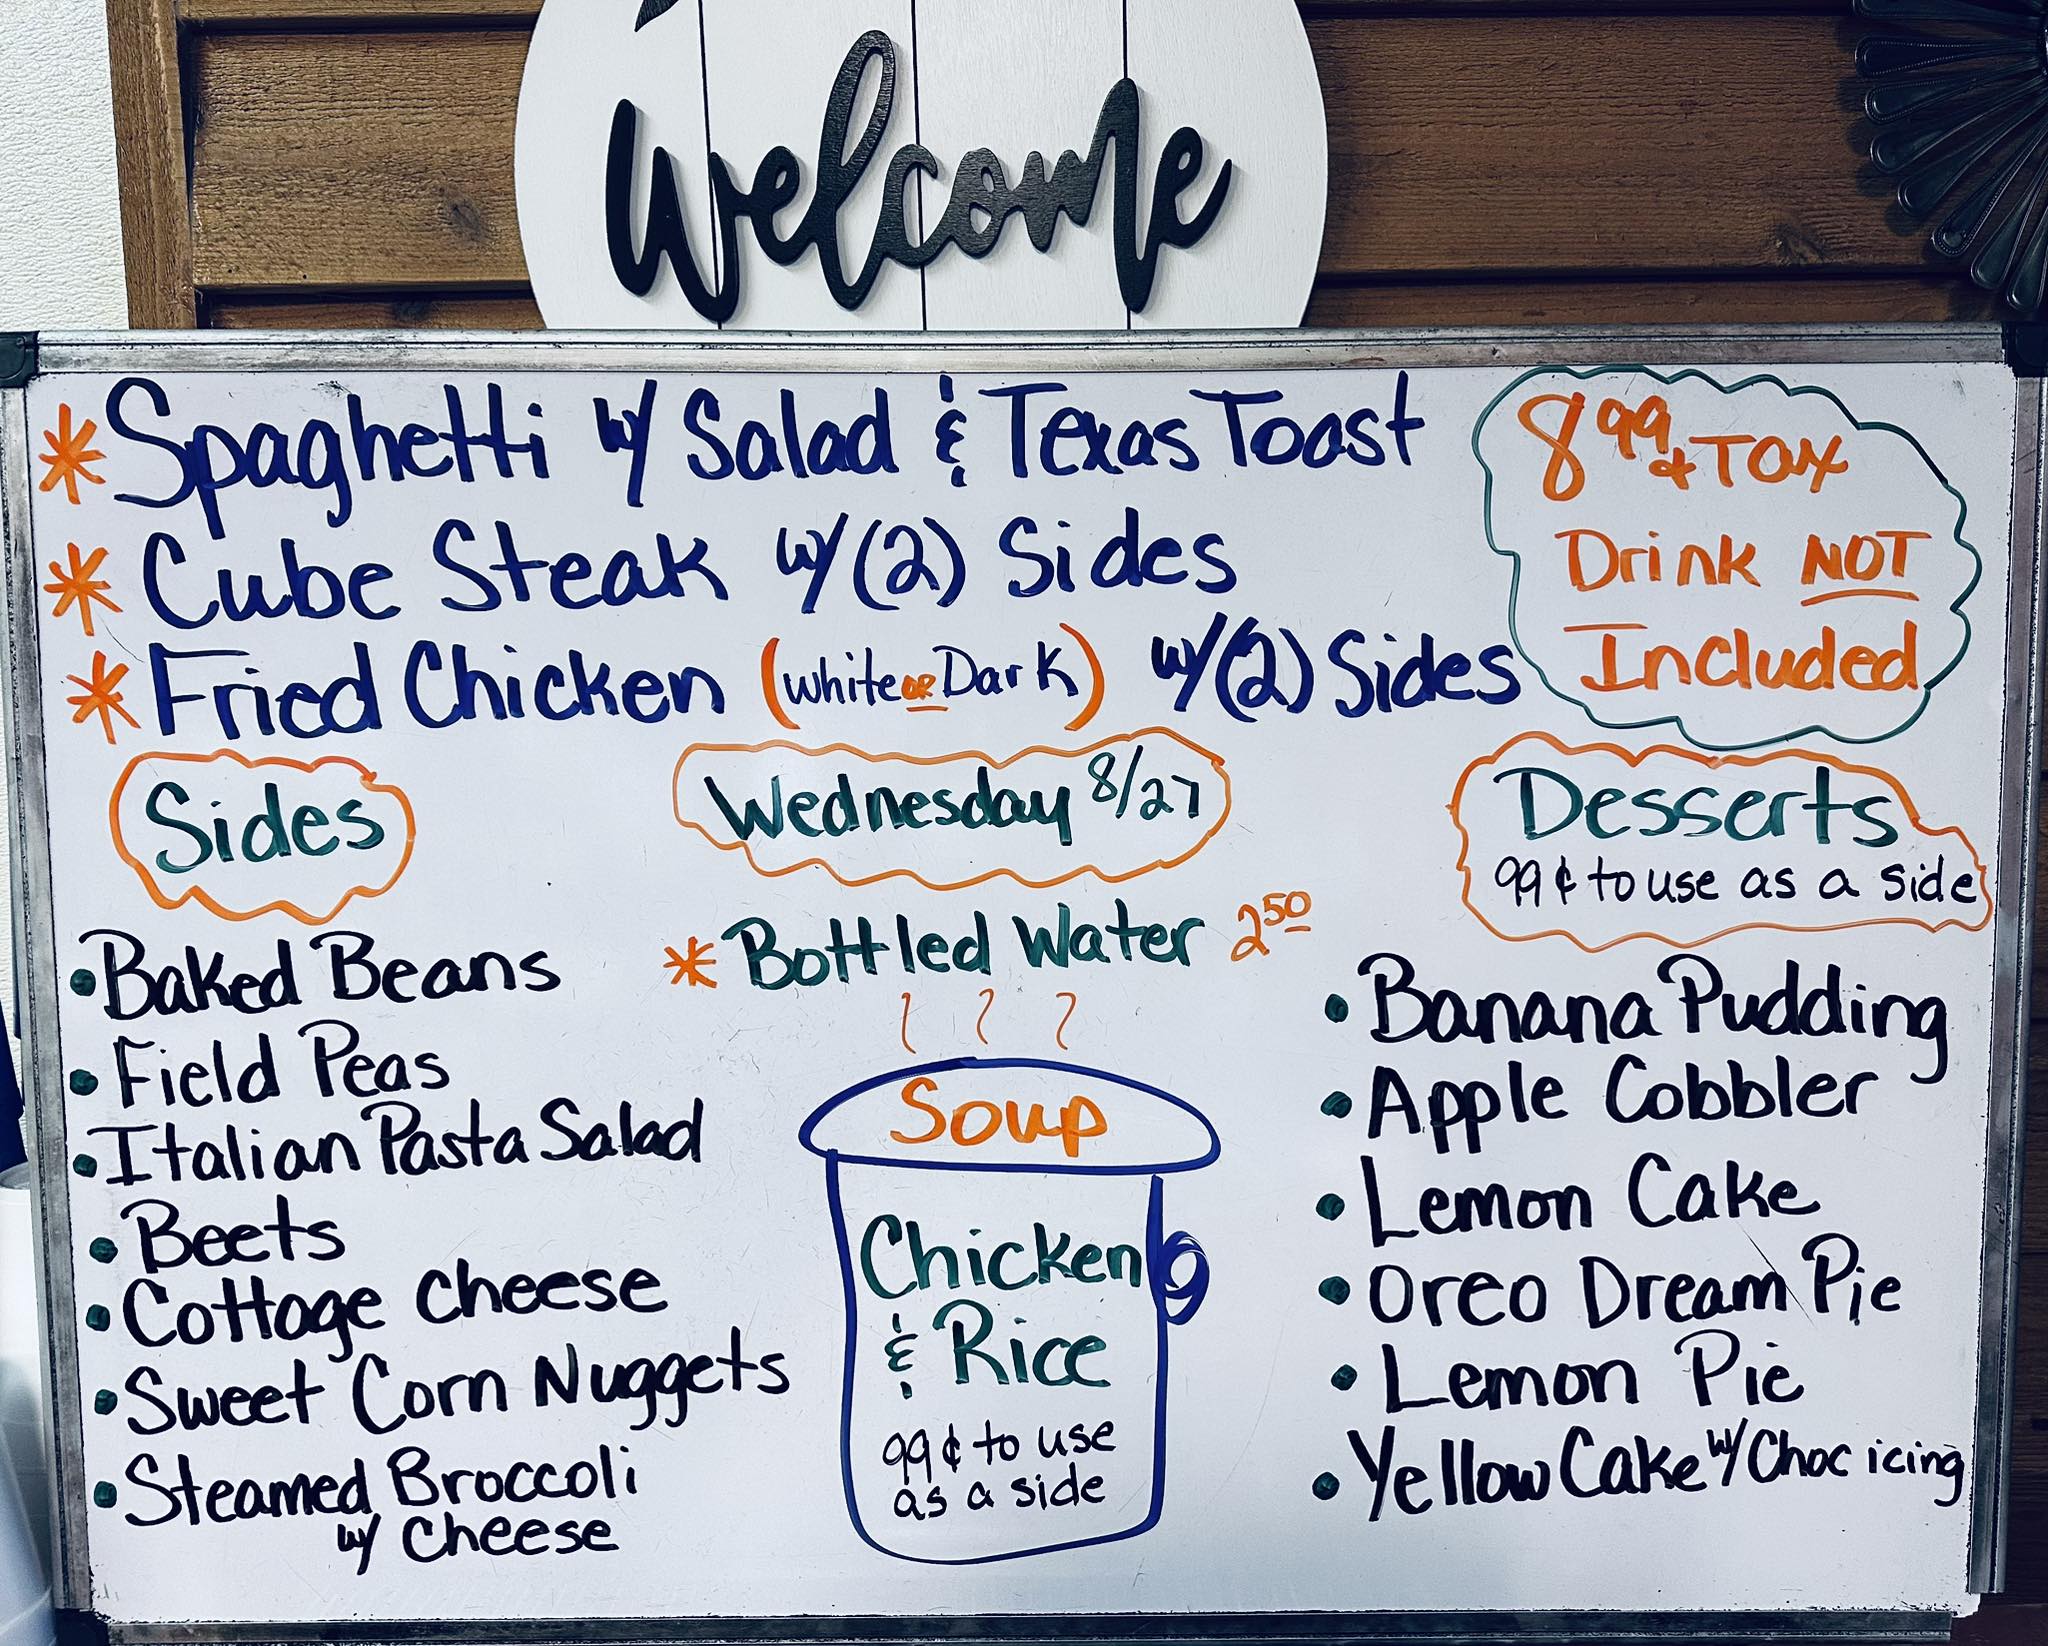 Welcome
* Spaghetti w/ Salad & Texas Toast
* Cube Steak w/ (2) Sides
* Fried Chicken (White or Dark) w/ (2) Sides
8.99 + Tax
Drink NOT
Included
Sides
• Baked Beans
• Field Peas
• Italian Pasta Salad
• Beets
• Cottage Cheese
• Sweet Corn Nuggets
• Steamed Broccoli
w/ Cheese
Wednesday 8/27
* Bottled Water 2.50
Soup
Chicken
& Rice
99¢ to use
as a side
Desserts
99¢ to use as a side
• Banana Pudding
• Apple Cobbler
• Lemon Cake
• Oreo Dream Pie
• Lemon Pie
• Yellow Cake w/ Choc icing